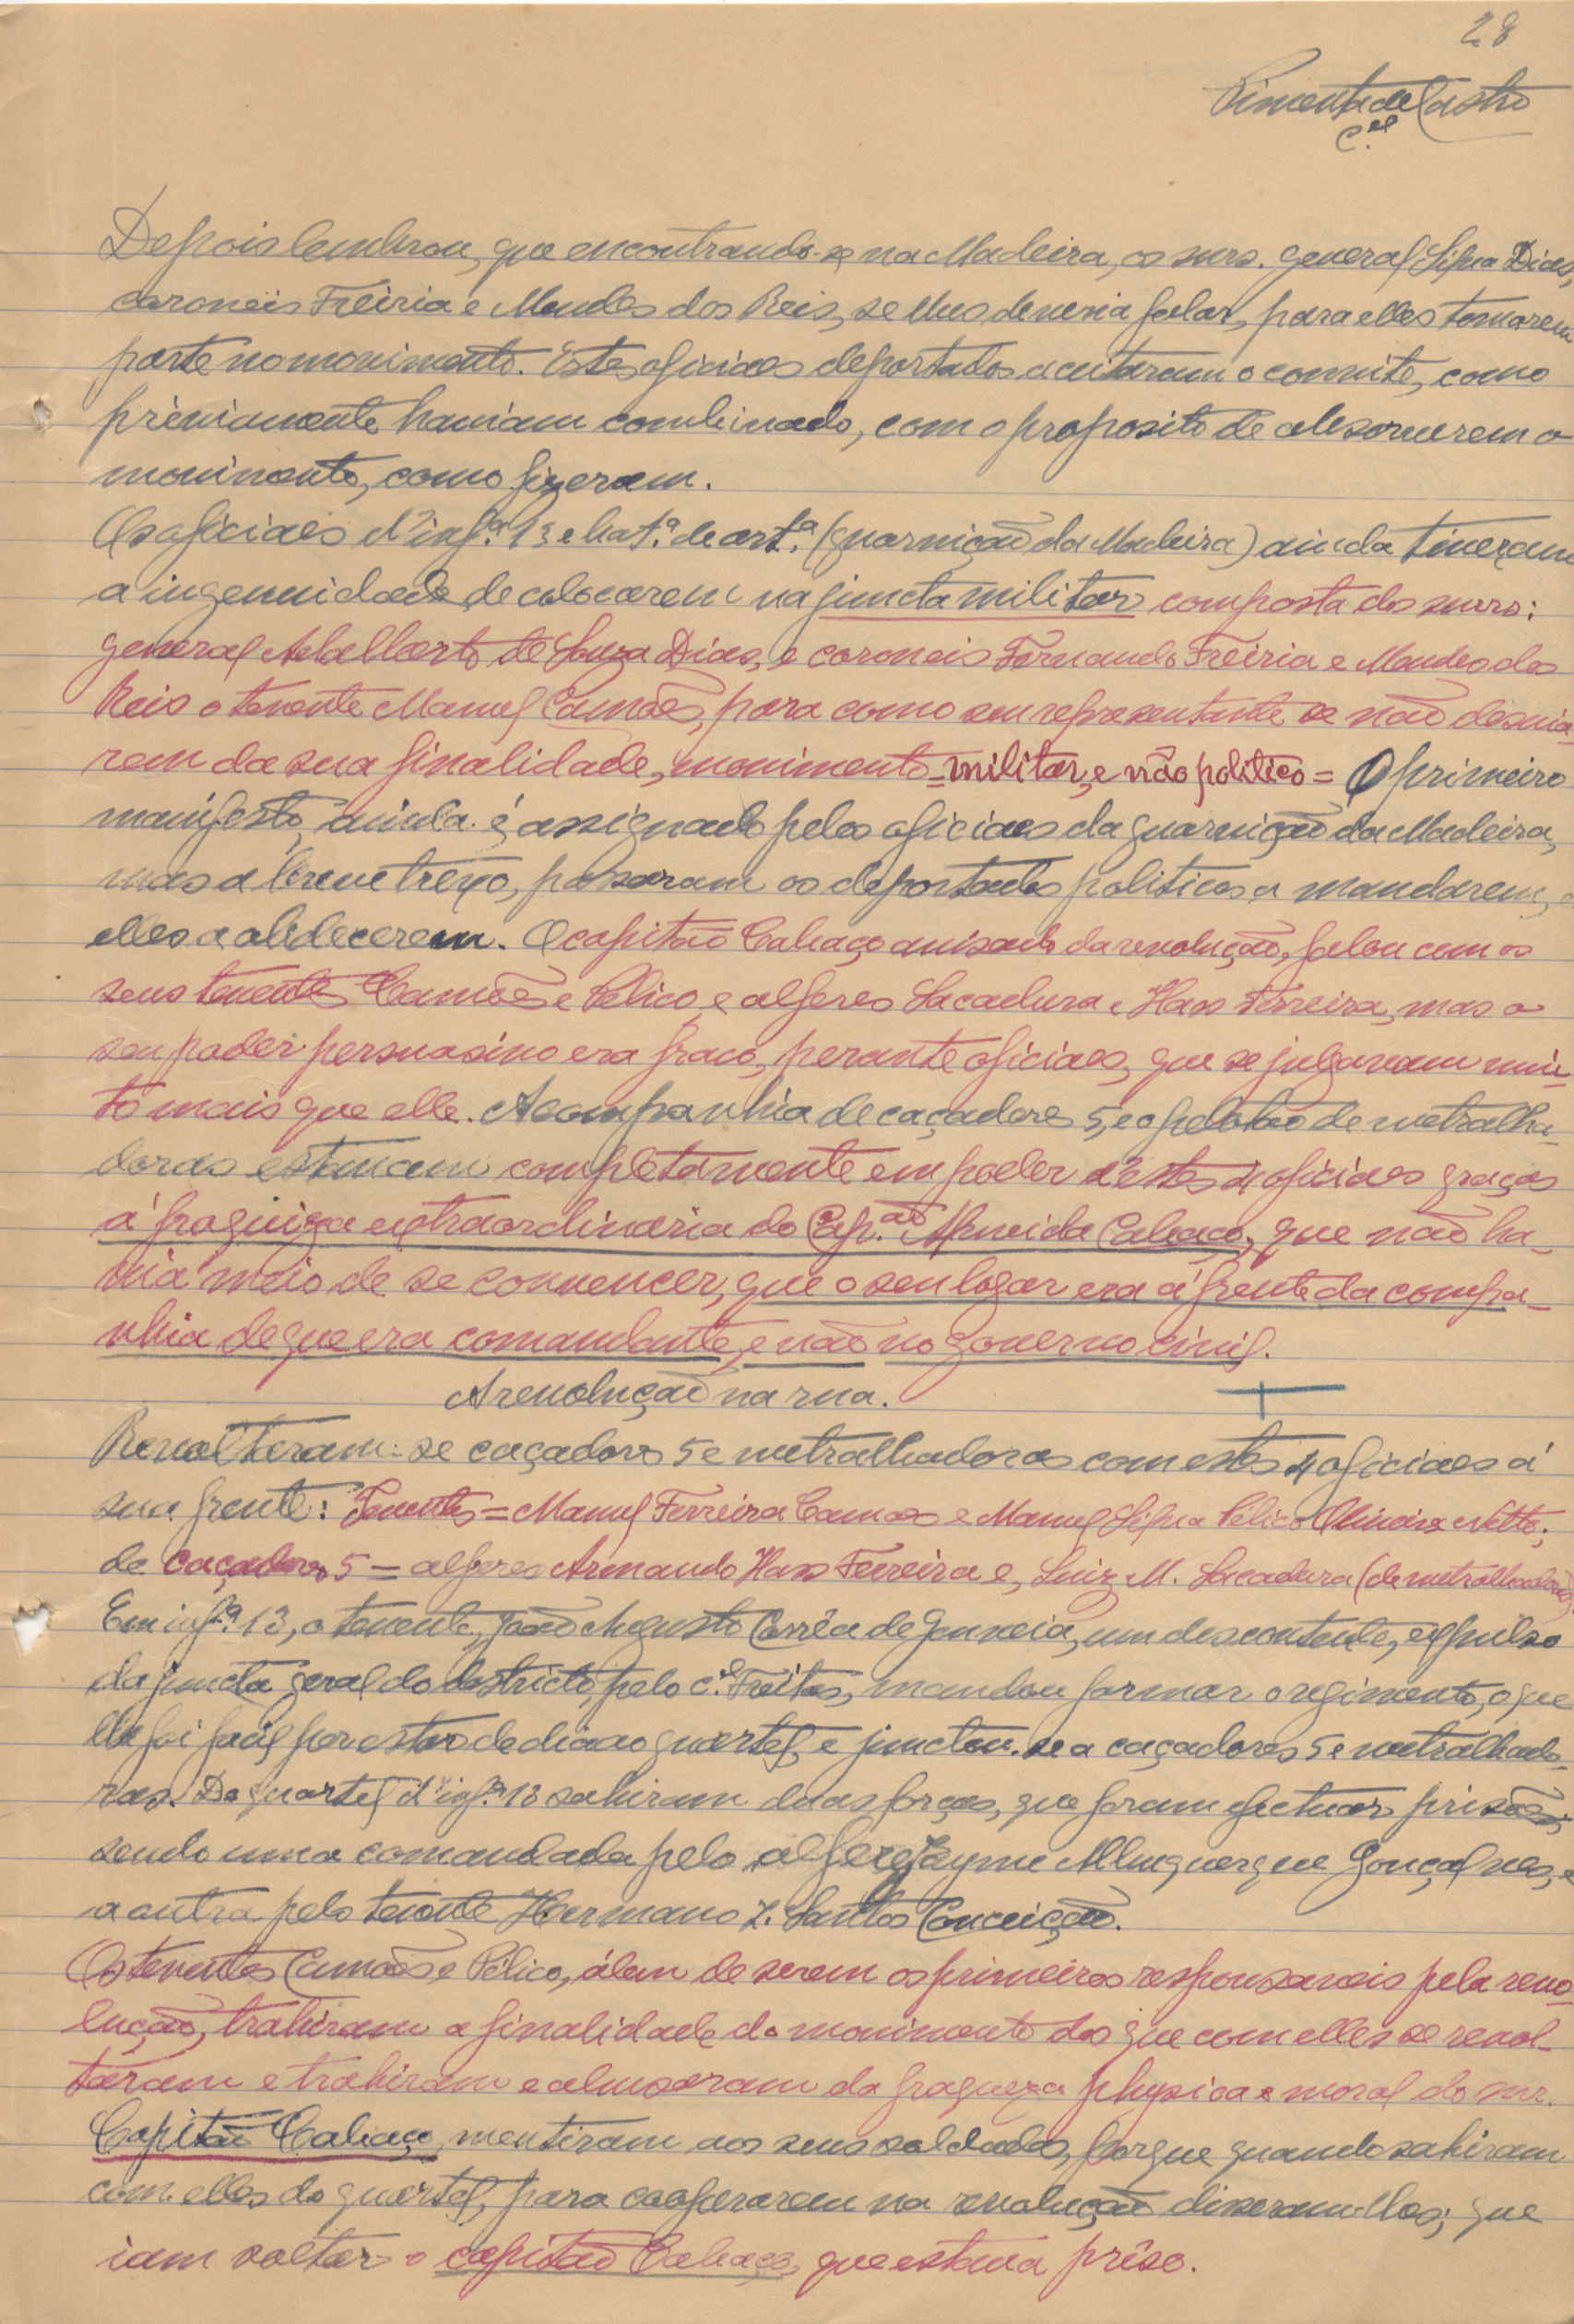 28
Pimenta de Castro
C.el
Depois lembrou, que encontrando-se na Madeira, os snrs. general Silva Dias,
coroneis Freiria e Mendes dos Reis, se lhes deveria falar, para elles tomarem
parte no movimento. Estes oficiaes deportados aceitaram o convite, como
préviamente haviam combinado, com o proposito de absorverem o
movimento, como fizeram.
Os oficiaes d'inf.ª 13 e bat.ª de art.ª (guarnição da Madeira) ainda tiveram
a ingenuidade de colocarem na juncta militar composta dos snrs:
general Adalberto de Souza Dias, e coroneis Fernando Freiria e Mendes dos
Reis o tenente Manuel Camões, para como seu representante se não desvia-
rem da sua finalidade, movimento = militar, e não politico = O primeiro
manifesto, ainda é assignado pelos oficiaes da guarnição da Madeira,
mas a breve trexo, passaram os deportados politicos a mandarem, e
elles a obdecerem. O capitão Cabaço avisado da revolução, falou com os
seus tenentes Camões e Pélico, e alferes Sacadura e Hass Ferreira, mas o
seu poder persuasivo era fraco, perante oficiaes, que se julgavam mui-
to mais que elle. A companhia de caçadores 5, e o pelotão de metralha-
doras estavam completamente em poder d'estes 4 oficiaes graças
á fraquiza extraordinaria do Cap.ão Almeida Cabaço, que não ha-
via meio de se convencer, que o seu logar era á frente da compa-
nhia de que era comandante, e não no governo civil.
A revolução na rua.
Revoltaram-se caçadores 5 e metralhadoras com estes 4 oficiaes á
sua frente: Tenentes = Manuel Ferreira Camões e Manuel Silva Pélico Oliveira Netto;
de caçadores 5 = alferes Armando Hass Ferreira e, Luiz M. Sacadura (de metralhadoras)
Em inf.ª 13, o tenente, João Augusto Corrêa de Gouveia, um descontente, expulso
da juncta geral do destricto, pelo c.el Freitas, mandou formar o regimento, o que
lhe foi facil por estar de dia ao quartel, e junctou-se a caçadores 5 e metralhado-
ras. Do quartel d'inf.ª 13 sahiram duas forças, que foram efectuar prisões,
sendo uma comandada pelo alferes Jayme Albuquerque Gonçalves, e
a outra pelo tenente Hermano Z. Santos Conceição.
Os tenentes Camões e Pélico, álem de serem os primeiros responsaveis pela revo-
lução, trahiram a finalidade do movimento dos que com elles se revol-
taram e trahiram e abusaram da fraqueza physica e moral do snr.
Capitão Cabaço, mentiram aos seus soldados, porque quando sahiram
com elles do quartel, para cooperarem na revolução disseram-lhes; que
iam soltar o capitão Cabaço, que estava prêso.